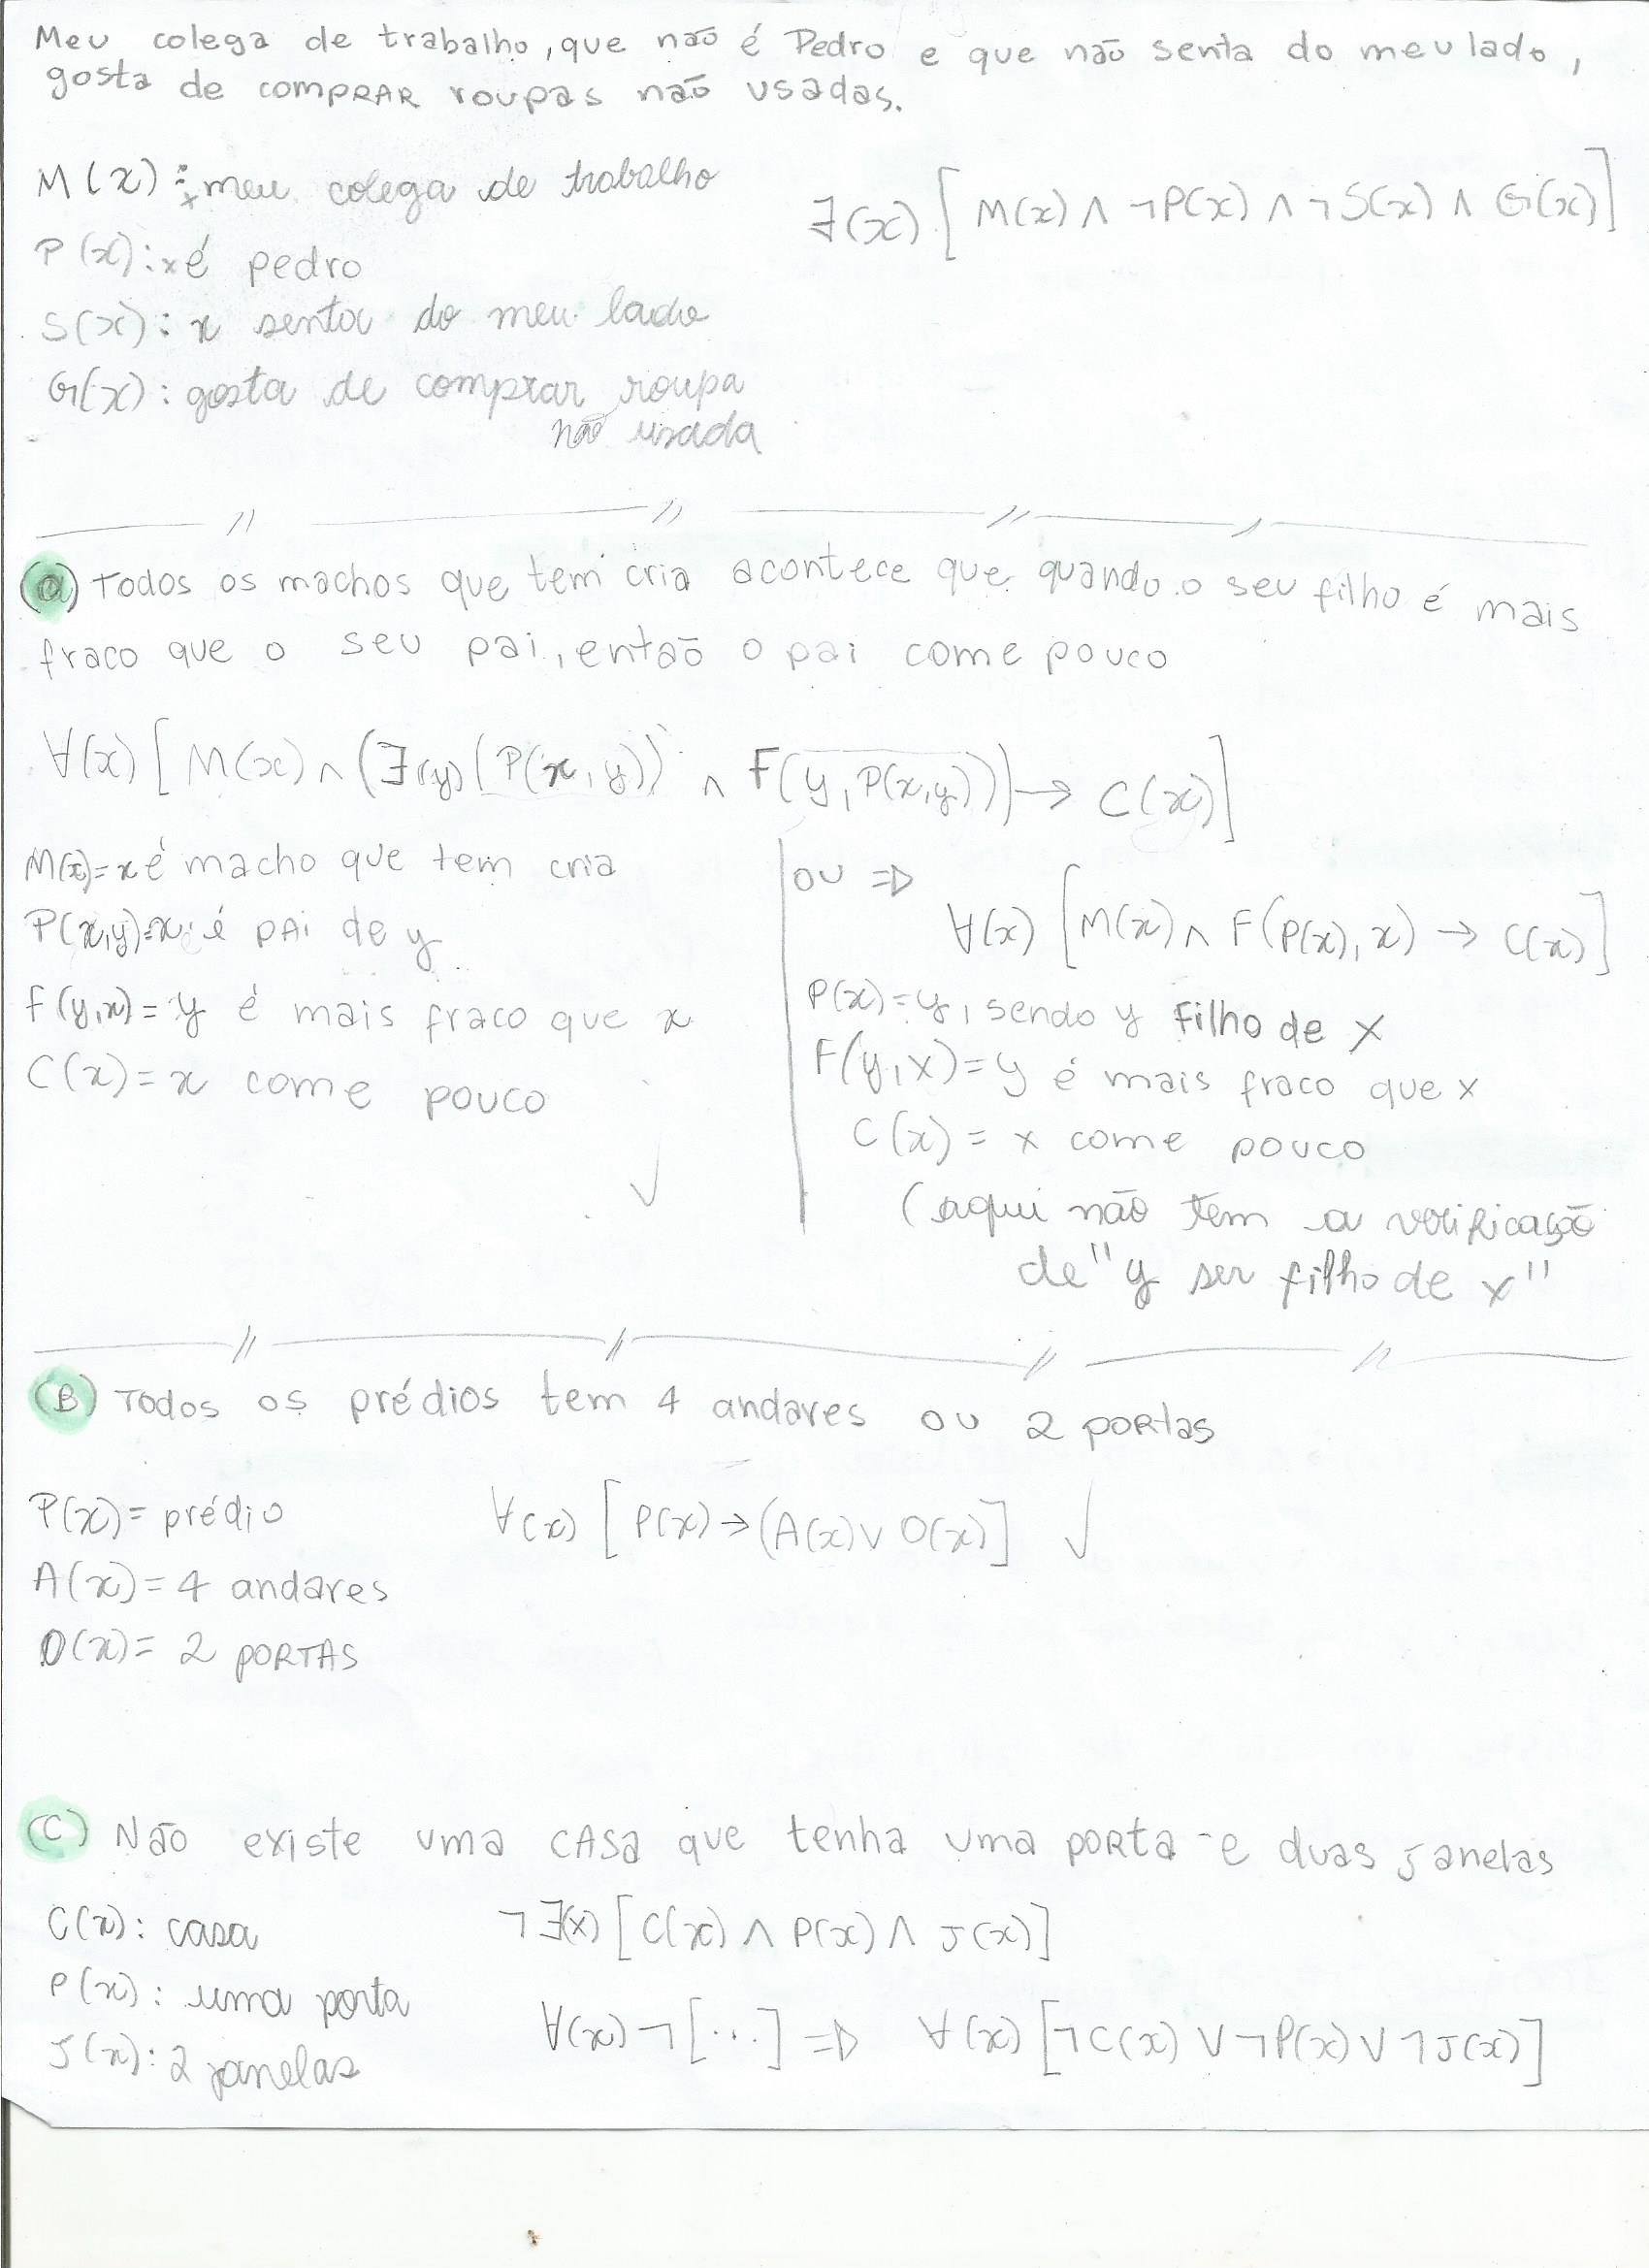 Meu colega de trabalho, que não é Pedro e que não senta do meu lado,
gosta de comprar roupas não usadas.
M(x): x meu colega de trabalho
∃(x) [M(x) ∧ ¬P(x) ∧ ¬S(x) ∧ G(x)]
P(x): x é pedro
S(x): x senta do meu lado
G(x): gosta de comprar roupa
não usada
(a) Todos os machos que tem cria acontece que quando o seu filho é mais
fraco que o seu pai, então o pai come pouco
∀(x) [M(x) ∧ (∃(y) (P(x,y)) ∧ F(y, P(x,y))) → C(x)]
M(x)= x é macho que tem cria
P(x,y)= x é pai de y
F(y,x)= y é mais fraco que x
C(x)= x come pouco
ou ⇒
∀(x) [M(x) ∧ F(P(x), x) → C(x)]
P(x)=y, sendo y filho de x
F(y,x)=y é mais fraco que x
C(x) = x come pouco
(aqui não tem a verificação
de "y ser filho de x"
(B) Todos os prédios tem 4 andares ou 2 portas
P(x)= prédio
∀(x) [P(x) → (A(x) ∨ O(x)]
A(x)= 4 andares
O(x)= 2 PORTAS
(C) Não existe uma casa que tenha uma porta e duas janelas
C(x): casa
¬∃(x) [C(x) ∧ P(x) ∧ J(x)]
P(x): uma porta
∀(x) ¬ [...] ⇒ ∀(x) [¬C(x) ∨ ¬P(x) ∨ ¬J(x)]
J(x): 2 janelas